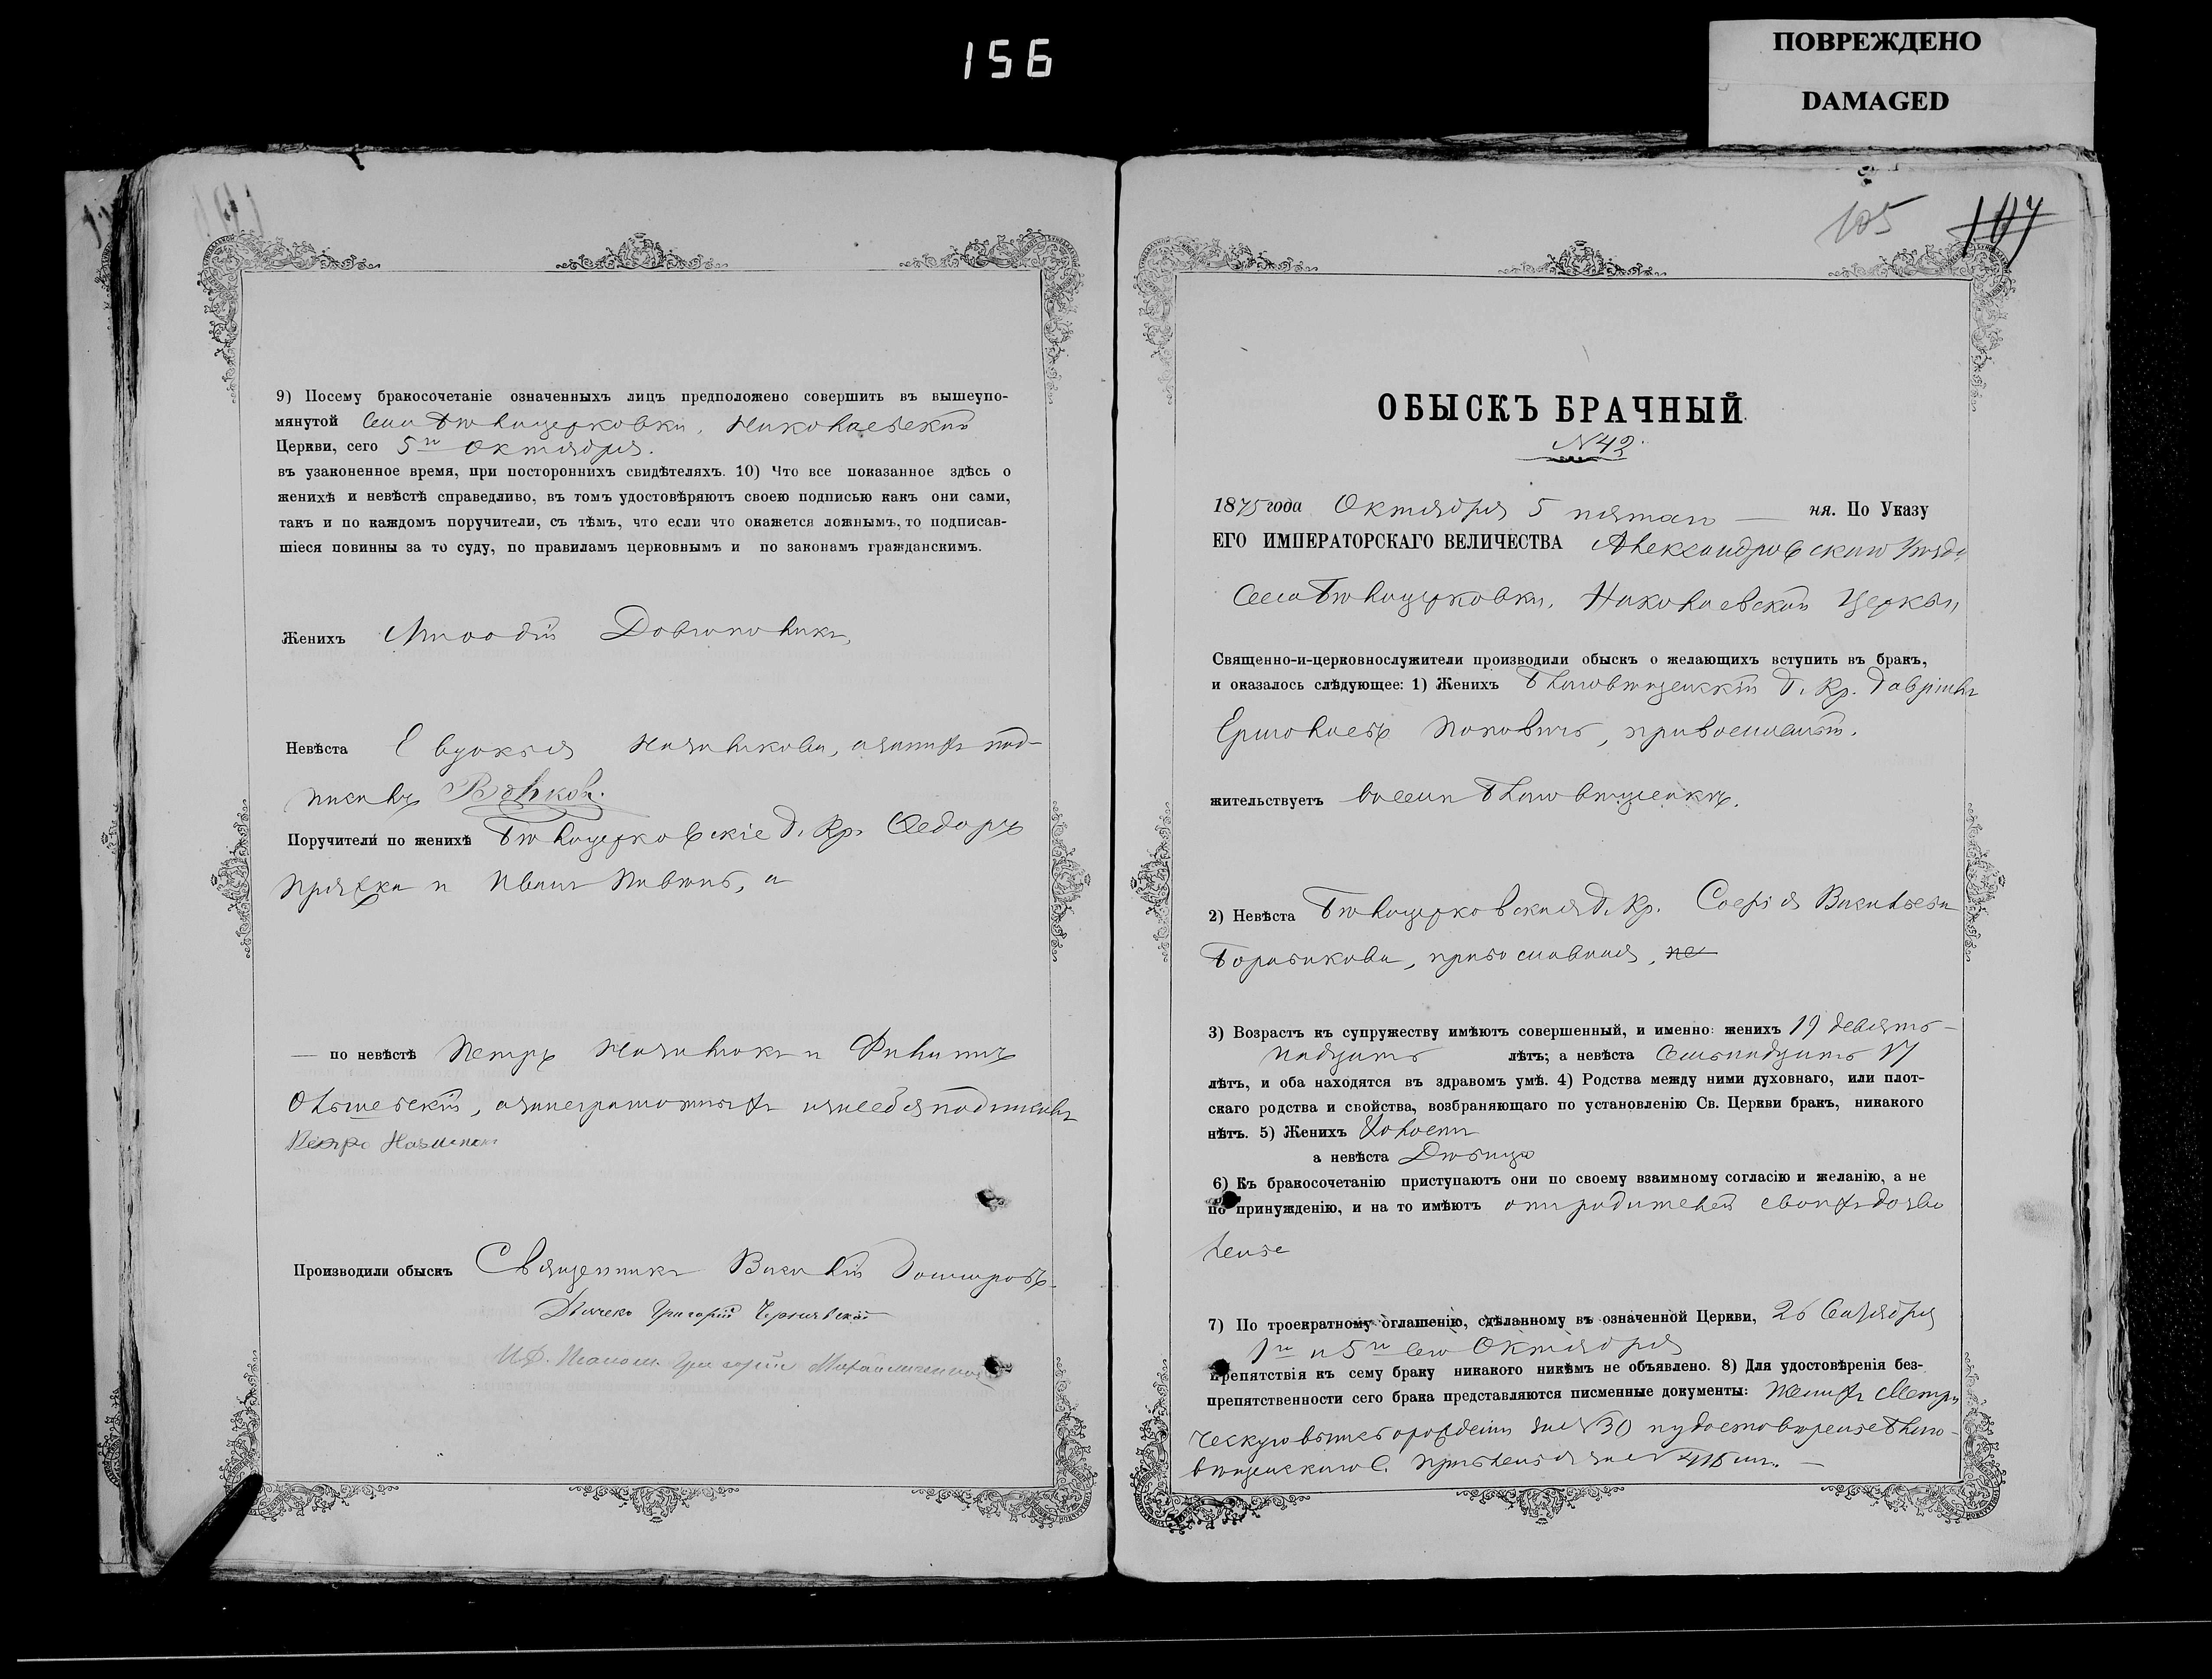 156
ПОВРЕЖДЕНО
DAMAGED
9) Посему бракосочетаніе означенныхъ лицъ предположено совершить въ вышеупо-
мянутой Села Бѣлоцерковки, Николаевской
Церкви, сего 5го Октября.
въ узаконенное время, при постороннихъ свидѣтеляхъ. 10) Что все показанное здѣсь о
женихѣ и невѣстѣ справедливо, въ томъ удостовѣряютъ своею подписью какъ они сами,
такъ и по каждомъ поручители, съ тѣмъ, что если что окажется ложнымъ, то подписав-
шіеся повинны за то суду, по правиламъ церковнымъ и по законамъ гражданскимъ.
Женихъ
Невѣста Евдокія а за нихъ под-
писалъ
Поручители по женихѣ Бѣлоцерковскіе Г. Кр. Ѳедоръ
Пряжка и Иванъ а
— по невѣстѣ Петръ и Филиппъ
Ольшевскій, а за неграмотныхъ и за себя подписалъ
Петро
Производили обыскъ Священникъ Василій
Дьячекъ Григорій Чернявскій
И. Д. Псалом. Григорій
105 107
ОБЫСКЪ БРАЧНЫЙ
№ 42.
1875 года Октября 5 пятаго — ня. По Указу
ЕГО ИМПЕРАТОРСКАГО ВЕЛИЧЕСТВА Александровскаго Уѣзда,
Села Бѣлоцерковки, Николаевской Церкви,
Священно-и-церковнослужители производили обыскъ о желающихъ вступить въ бракъ,
и оказалось слѣдующее: 1) Женихъ Благовѣщенскій Г. Кр. Гавріилъ
Ермолаевъ Поповичъ, православный.
жительствуетъ въ селѣ Благовѣщенкѣ.
2) Невѣста Бѣлоцерковская Г. Кр. Софія Васильева
православная, не
3) Возрастъ къ супружеству имѣютъ совершенный, и именно: женихъ 19 девят-
надцать лѣтъ; а невѣста Семьнадцать 17
лѣтъ, и оба находятся въ здравомъ умѣ. 4) Родства между ними духовнаго, или плот-
скаго родства и свойства, возбраняющаго по установленію Св. Церкви бракъ, никакого
нѣтъ. 5) Женихъ Холостъ
а невѣста Дѣвица
6) Къ бракосочетанію приступаютъ они по своему взаимному согласію и желанію, а не
по принужденію, и на то имѣютъ отъ родителей своихъ дозво
леніе
7) По троекратному оглашенію, сдѣланному въ означенной Церкви, 26 Сентября
1го и 5го сего Октября
препятствія къ сему браку никакого никѣмъ не объявлено. 8) Для удостовѣренія без-
препятственности сего брака представляются писменные документы: Женихъ Метри
ческую выпись о рожденіи за № 30 и удостовѣреніе Благо-
вѣщенскаго С. Правленія за № 416 мъ. —